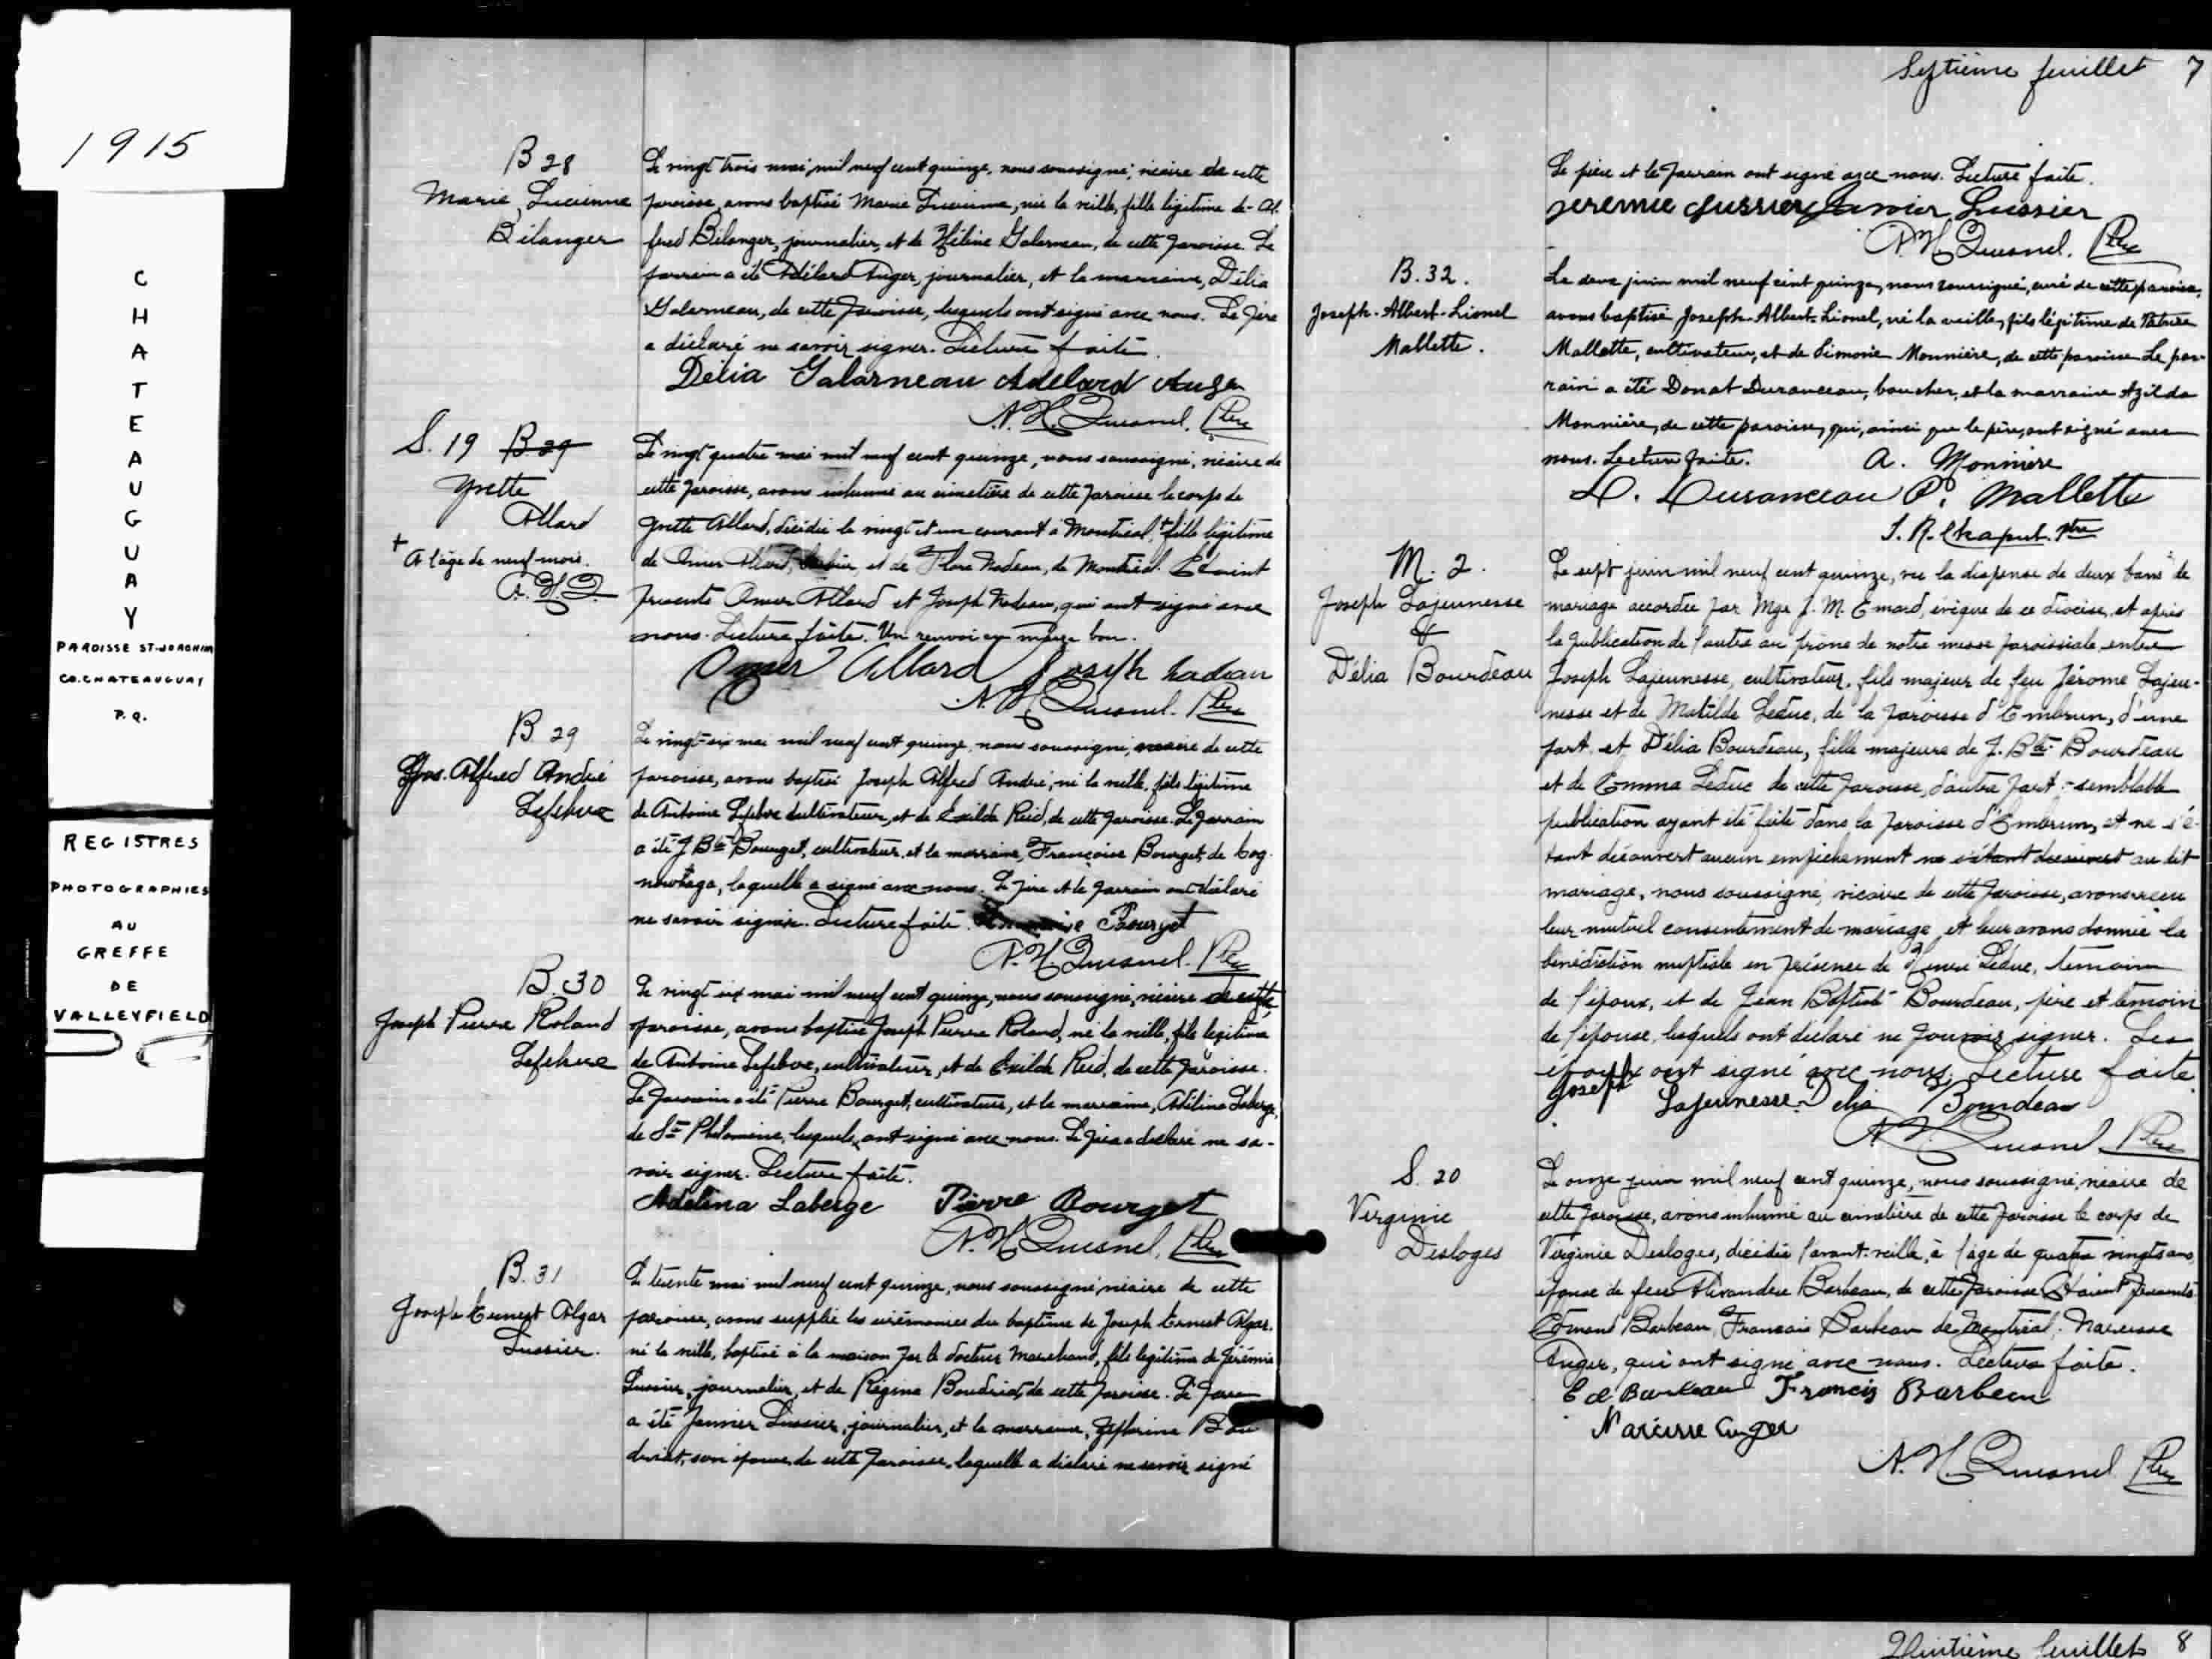 1915
CHATEAUGUAY
PAROISSE ST-JOACHIM
CO. CHATEAUGUAY
P. Q.
REGISTRES
PHOTOGRAPHIÉS
AU
GREFFE
DE
VALLEYFIELD
B 28
Marie, Lucienne
Bélanger
Le vingt trois mai, mil neuf cent quinze, nous soussigné, vicaire de cette
paroisse, avons baptisé Marie Lucienne, née la veille, fille légitime de Al-
fred Bélanger, journalier, et de Hélène Galarneau, de cette paroisse. Le
parrain a été Adélard Auger, journalier, et la marraine, Délia
Galarneau, de cette paroisse, lesquels ont signé avec nous. Le père
a déclaré ne savoir signer. Lecture faite.
Délia Galarneau Adelard Auger
A. H. Quesnel, Ptre
S. 19 B 29
Yvette
Allard
+ A l'âge de neuf mois.
A. H. Q.
Le vingt quatre mai mil neuf cent quinze, nous soussigné, vicaire de
cette paroisse, avons inhumé au cimetière de cette paroisse le corps de
Yvette Allard, décédée le vingt et un courant à Montréal, + fille légitime
de Omer Allard, et de Flore Nadeau, de Montréal. Etaient
présents Omer Allard et Joseph Nadeau, qui ont signé avec
nous. Lecture faite. Un renvoi en marge bon.
Omer Allard Joseph Nadeau
A. H. Quesnel. Ptre
B. 29
Jos. Alfred André
Lefebvre
Le vingt-six mai mil neuf cent quinze, nous soussigné, vicaire de cette
paroisse, avons baptisé Joseph Alfred André, né la veille, fils légitime
de Antoine Lefebvre cultivateur, et de Exilda Reid, de cette paroisse. Le parrain
a été J. Bte Bourget, cultivateur, et la marraine, Françoise Bourget, de Cog-
nowhaga, laquelle a signé avec nous. Le père et le parrain ont déclaré
ne savoir signer. Lecture faite. Bourget
A. H. Quesnel. Ptre
B. 30
Joseph Pierre Roland
Lefebvre
Le vingt six mai mil neuf cent quinze, nous soussigné, vicaire de cette
paroisse, avons baptisé Joseph Pierre Roland, né la veille, fils légitime
de Antoine Lefebvre, cultivateur, et de Exilda Reid, de cette paroisse.
Le parrain a été Pierre Bourget, cultivateur, et la marraine, Adélina Laberge,
de St Philomène, lesquels ont signé avec nous. Le père a déclaré ne sa-
voir signer. Lecture faite.
Adelina Laberge Pierre Bourget
A. H. Quesnel, Ptre
B. 31
Joseph Ernest Algar
Lussier.
Le trente mai mil neuf cent quinze, nous soussigné vicaire de cette
paroisse, avons supplée les cérémonies du baptême de Joseph Ernest Algar,
né la veille, baptisé à la maison par le docteur Marchand, fils légitime de Jérémie
Lussier, journalier, et de Régina Boudriat, de cette paroisse. Le parrain
a été Janvier Lussier, journalier, et la marraine, Zéphirina Bou
driat, son épouse, de cette paroisse, laquelle a déclaré ne savoir signé
Septième feuillet 7
Le père et le parrain ont signé avec nous. Lecture faite.
Jeremie Lussier Janvier Lussier
A. H. Quesnel. Ptre
B. 32.
Joseph-Albert-Lionel
Mallette.
Le deux juin mil neuf cent quinze, nous soussigné, curé de cette paroisse,
avons baptisé Joseph-Albert-Lionel, né la veille, fils légitime de
Mallette, cultivateur, et de Monnière, de cette paroisse. Le par-
rain a été Donat Duranceau, boucher, et la marraine Azilda
Monnière, de cette paroisse, qui, ainsi que le père, ont signé avec
nous. Lecture faite. A. Monnière
D. Duranceau P. Mallette
J. R. Chaput. Ptre
M. 2.
Joseph Lajeunesse
&
Délia Bourdeau
Le sept juin mil neuf cent quinze, vu la dispense de deux bans de
mariage accordée par Mgr J. M. Emard, évêque de ce diocèse, et après
la publication de l'autre au prône de notre messe paroissiale entre
Joseph Lajeunesse, cultivateur, fils majeur de feu Jérome Lajeu-
nesse et de Matilde Leduc, de la paroisse d'Embrun, d'une
part, et Délia Bourdeau, fille majeure de J. Bte Bourdeau
et de Emma Leduc de cette paroisse, d'autre part: semblable
publication ayant été faite dans la paroisse d'Embrun, et ne s'é-
tant découvert aucun empêchement ne s'étant découvert au dit
mariage, nous soussigné, vicaire de cette paroisse, avons reçu
leur mutuel consentement de mariage, et leur avons donnée la
bénédiction nuptiale en présence de Leduc, témoin
de l'époux, et de Jean Baptiste Bourdeau, père et témoin
de l'épouse, lesquels ont déclaré ne pouvoir signer. Les
époux ont signé avec nous. Lecture faite.
Joseph Lajeunesse. Delia Bourdeau
A. H. Quesnel Ptre
S. 20
Virginie
Desloges
Le onze juin mil neuf cent quinze, nous soussigné, vicaire de
cette paroisse, avons inhumé au cimetière de cette paroisse le corps de
Virginie Desloges, décédée l'avant-veille, à l'âge de quatre vingts ans,
épouse de feu Alexandre Barbeau, de cette paroisse. Etaient présents
Edmond Barbeau, Francois Barbeau de Montréal, Narcisse
Auger, qui ont signé avec nous. Lecture faite.
Ed Barbeau Francis Barbeau
Narcisse Auger
A. H. Quesnel Ptre
Huitième feuillet 8